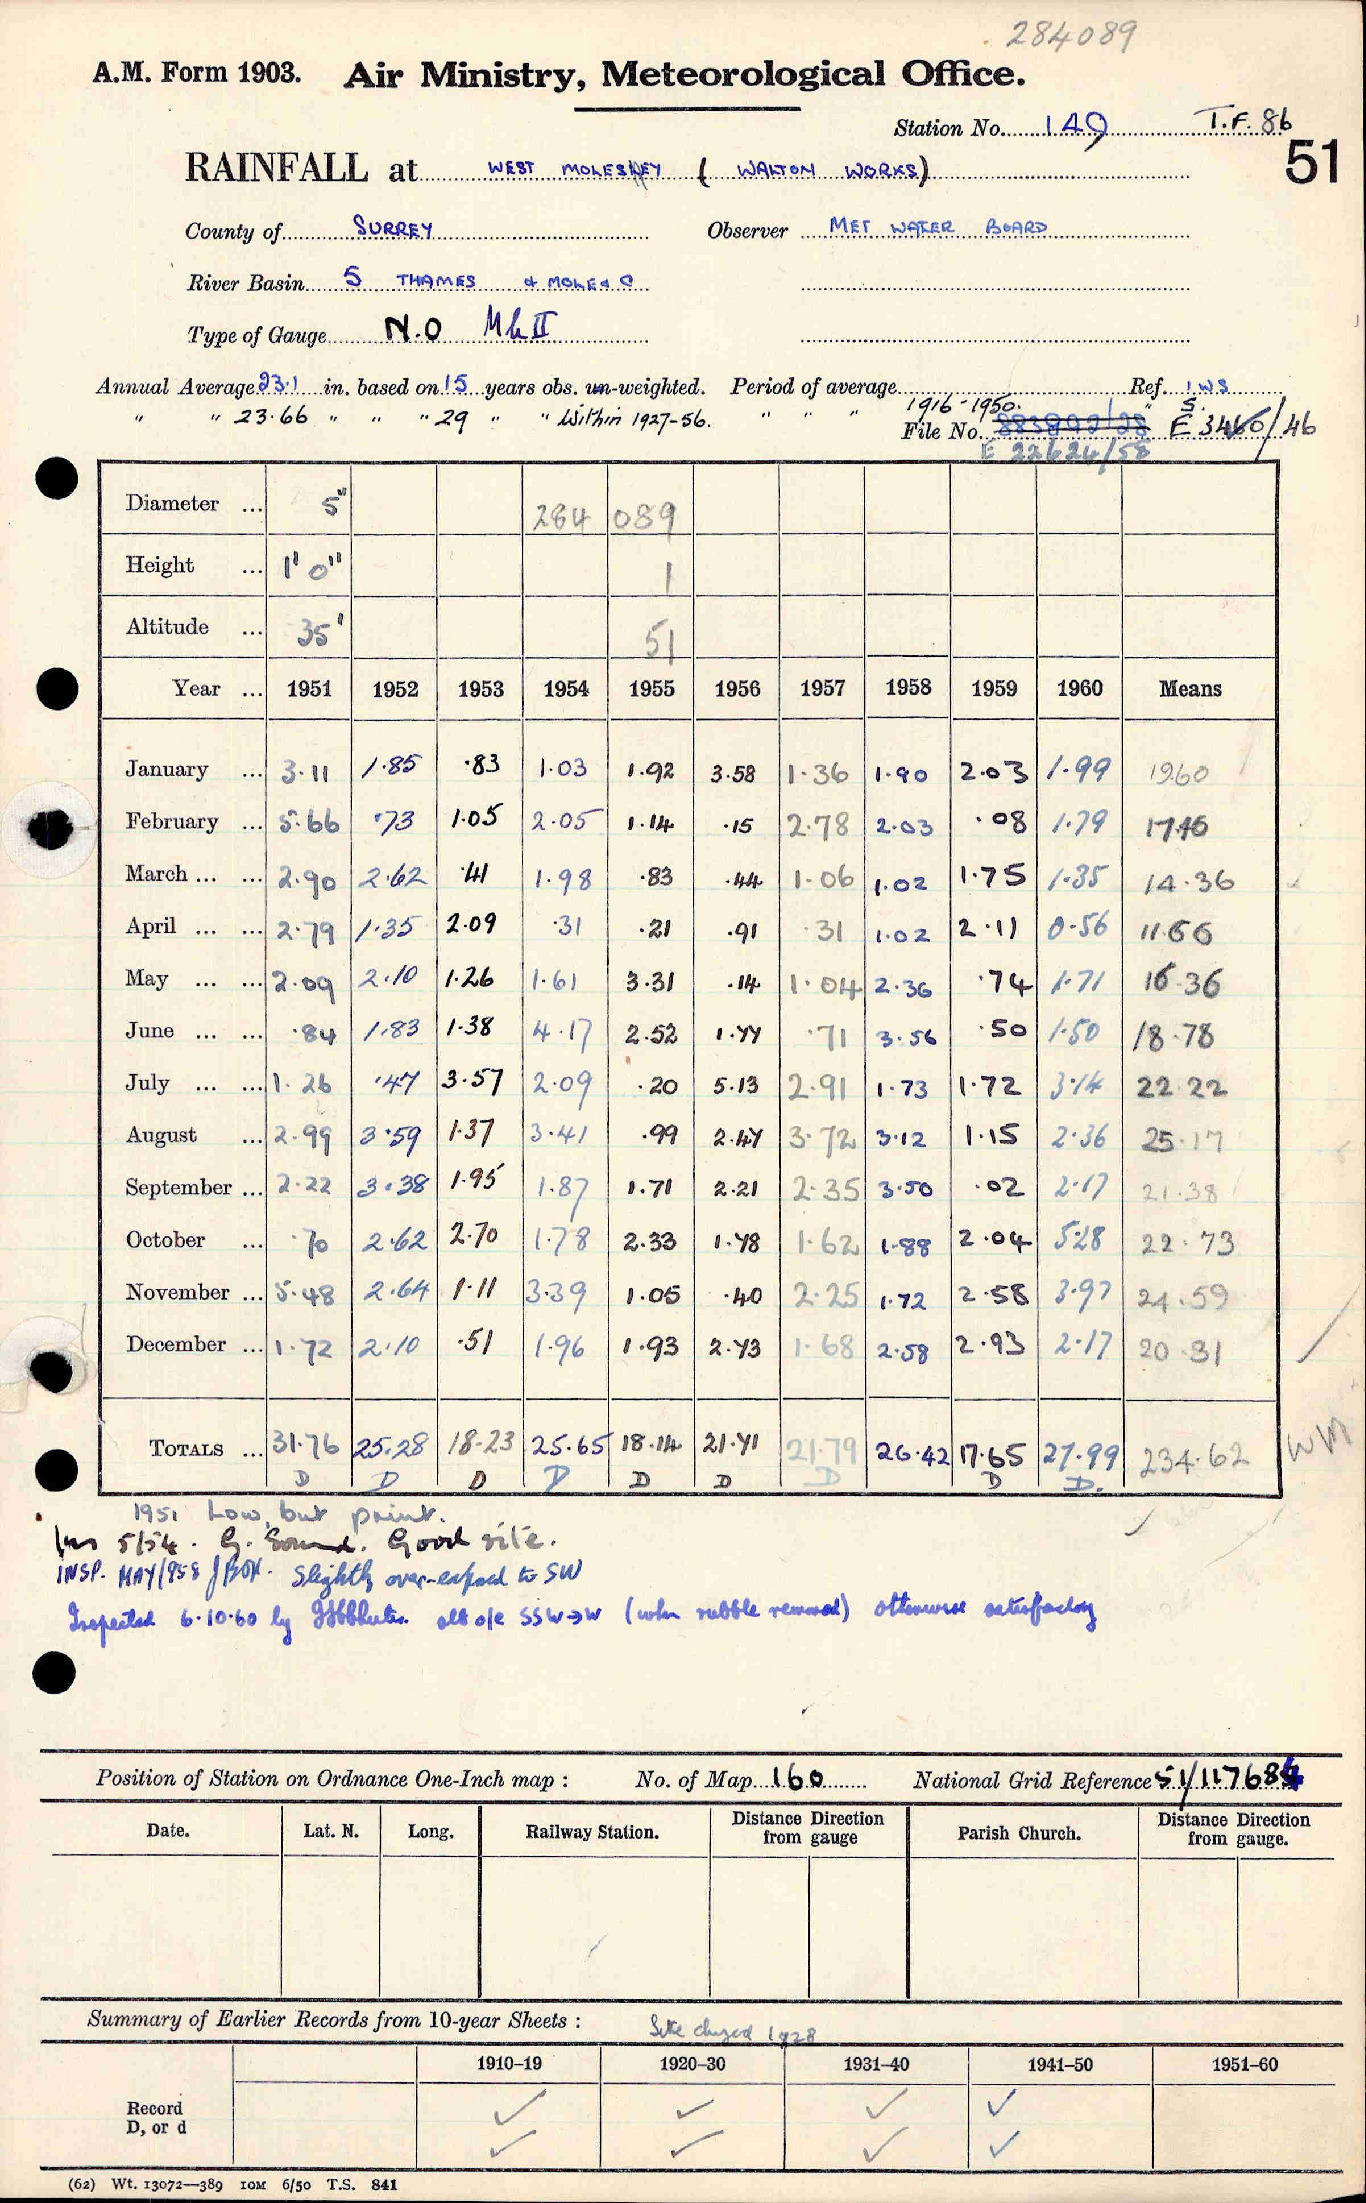 284089
A.M. Form 1903. Air Ministry, Meteorological Office.
Station No. 149 T.F. 86
51
RAINFALL at WEST MOLESEY (WALTON WORKS)
County of SURREY Observer MET WATER BOARD
River Basin 5 THAMES & MOLE & C
Type of Gauge N.O Mk II
Annual Average 23.1 in. based on 15 years obs. un-weighted. Period of average Ref. 1 WS
" " 23.66 " " " 29 " " Within 1927-56. " " " 1916-1950. " S.
File No. 883892/28 E 3460/46
E 22624/58
Diameter ... 5" 284 089
Height ... 1' 0" 1
Altitude ... 35' 51
Year ... 1951 1952 1953 1954 1955 1956 1957 1958 1959 1960 Means
January ... 3.11 1.85 .83 1.03 1.92 3.58 1.36 1.90 2.03 1.99 19.60
February ... 5.66 .73 1.05 2.05 1.14 .15 2.78 2.03 .08 1.79 17.46
March ... ... 2.90 2.62 .41 1.98 .83 .44 1.06 1.02 1.75 1.35 14.36
April ... ... 2.79 1.35 2.09 .31 .21 .91 .31 1.02 2.11 0.56 11.66
May ... ... 2.09 2.10 1.26 1.61 3.31 .14 1.04 2.36 .74 1.71 16.36
June ... ... .84 1.83 1.38 4.17 2.52 1.77 .71 3.56 .50 1.50 18.78
July ... ... 1.26 .47 3.57 2.09 .20 5.13 2.91 1.73 1.72 3.14 22.22
August ... 2.99 3.59 1.37 3.41 .99 2.47 3.72 3.12 1.15 2.36 25.17
September ... 2.22 3.38 1.95 1.87 1.71 2.21 2.35 3.50 .02 2.17 21.38
October ... .70 2.62 2.70 1.78 2.33 1.78 1.62 1.88 2.04 5.28 22.73
November ... 5.48 2.64 1.11 3.39 1.05 .40 2.25 1.72 2.58 3.97 24.59
December ... 1.72 2.10 .51 1.96 1.93 2.73 1.68 2.58 2.93 2.17 20.31
TOTALS ... 31.76 25.28 18.23 25.65 18.14 21.71 21.79 26.42 17.65 27.99 234.62
D D D D D D D D D.
WM
1951 Low, but print.
Ins 5/54. G. Sound. Good site.
INSP. MAY/958 J BOX. Slightly over-exposed to SW
Inspected 6.10.60 by alt o/e SSW→W (when rubble removed) otherwise satisfactory
Position of Station on Ordnance One-Inch map : No. of Map 160 National Grid Reference 51/117684
Date. Lat. N. Long. Railway Station. Distance Direction from gauge Parish Church. Distance Direction from gauge.
Summary of Earlier Records from 10-year Sheets : Site changed 1928
1910–19 1920–30 1931–40 1941–50 1951–60
Record
D, or d
(62) Wt. 13072—389 10M 6/50 T.S. 841